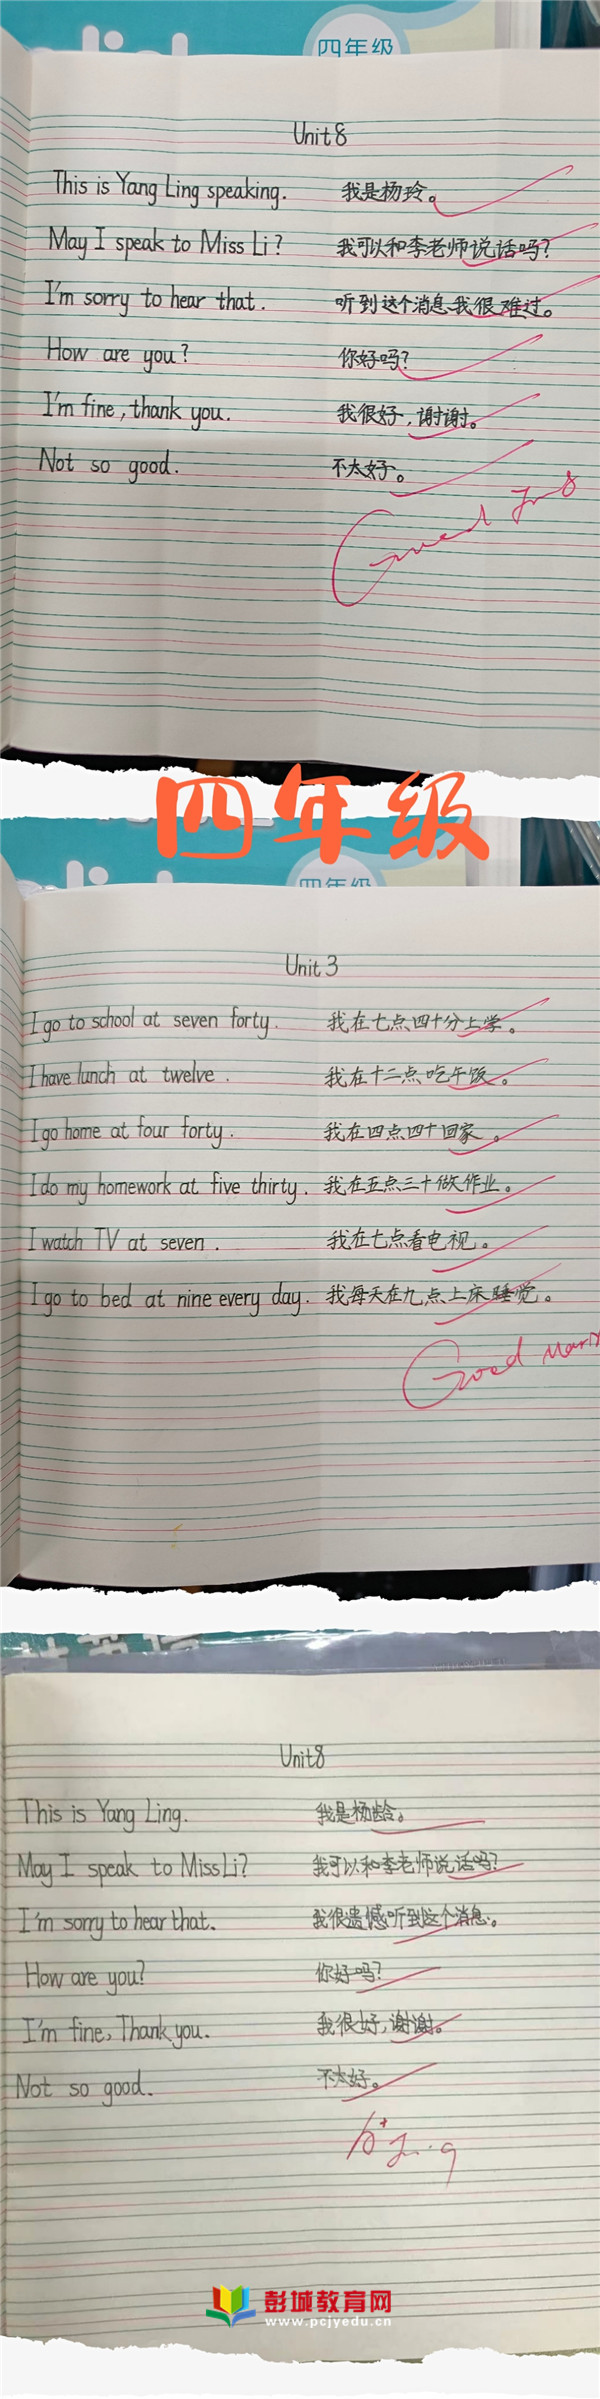 四年级
Unit 8
This is Yang Ling speaking. 我是杨玲。
May I speak to Miss Li? 我可以和李老师说话吗?
I'm sorry to hear that. 听到这个消息我很难过。
How are you? 你好吗?
I'm fine, thank you. 我很好,谢谢。
Not so good. 不太好。
Good
四年级
四年级
Unit 3
I go to school at seven forty. 我在七点四十分上学。
I have lunch at twelve. 我在十二点吃午饭。
I go home at four forty. 我在四点四十回家。
I do my homework at five thirty. 我在五点三十做作业。
I watch TV at seven. 我在七点看电视。
I go to bed at nine every day. 我每天在九点上床睡觉。
Good
Unit8
This is Yang Ling. 我是杨龄。
May I speak to Miss Li? 我可以和李老师说话吗?
I'm sorry to hear that. 我很遗憾听到这个消息。
How are you? 你好吗?
I'm fine, Thank you. 我很好,谢谢。
Not so good. 不太好。
彭城教育网
www.pcjyedu.cn